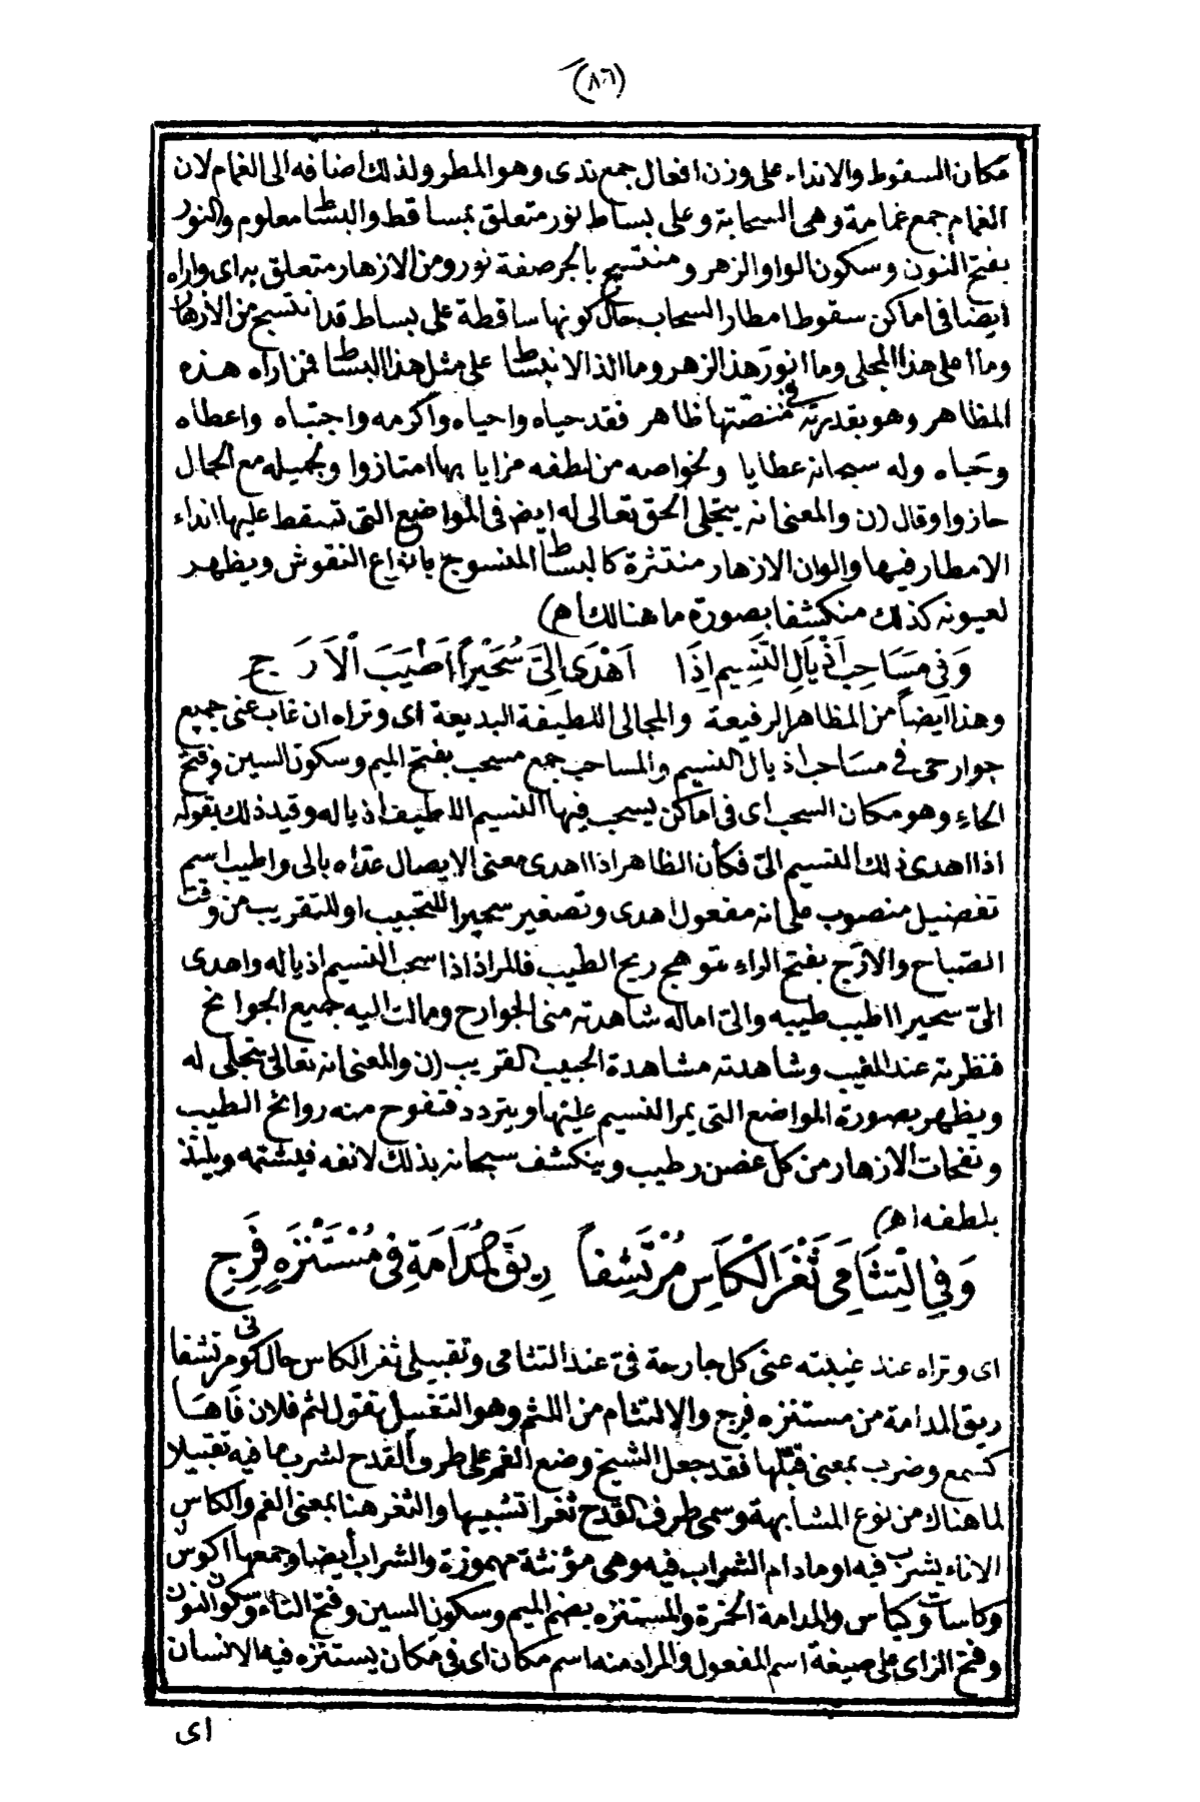 (٨٦)
مكان السقوط والانداء على وزن افعال جمع ندى وهو المطر ولذلك اضافه الى الغمام لان
الغمام جمع غمامة وهى السحابة وعلى بساط نور متعلق بمساقط والبساط معلوم والنور
بفتح النون وسكون الواو الزهر ومنتسج بالجر صفة نور ومن الازهار متعلق به اى واراه
ايضا فى اماكن سقوط امطار السحاب حال كونها ساقطة على بساط قد انتسج من الازهار
وما اعلى هذا المجلى وما انور هذا الزهر وما الذ الانبساط على مثل هذا البساط فمن اراه هذه
المظاهر وهو بقدرته فى منصتها ظاهر فقد حياه واحياه واكرمه واجتباه واعطاه
وحباه وله سبحانه عطايا ولخواصه من لطفه مزايا بها امتازوا ولجميله مع الجمال
حازوا وقال (ن والمعنى انه يتجلى الحق تعالى له ايضا فى المواضع التى تسقط عليها انداء
الامطار فيها والوان الازهار منتثرة كالبساط المنسوج بانواع النقوش ويظهر
لعيونه كذلك منكشفا بصورة ما هنالك اهـ)
وَفِى مَسَاحِبِ اَذْيَالِ النَّسِيمِ اِذَا اَهْدَى اِلَىَّ سُحَيْراً اَطْيَبَ الْاَرَجِ
وهذا ايضاً من المظاهر الرفيعة والمجالى اللطيفة البديعة اى وتراه ان غاب عنى جميع
جوارحى فى مساحب اذيال النسيم والمساحب جمع مسحب بفتح الميم وسكون السين وفتح
الحاءِ وهو مكان السحب اى فى اماكن يسحب فيها النسيم اللطيف اذياله وقيد ذلك بقوله
اذا اهدى ذلك النسيم الىّ فكأن الظاهر اذا اهدى معنى الايصال عدّاه بالى واطيب اسم
تفضيل منصوب على انه مفعول اهدى وتصغير سحيرا للتحبيب او للتقريب من وقت
الصّباح والارَج بفتح الراءِ توهج ريح الطيب فالمراد اذا سحب النسيم اذياله واهدى
الىّ سحيرا اطيب طيبه والىّ اماله شاهدته منى الجوارح ومالت اليه جميع الجوانح
فنظرته عند المغيب وشاهدته مشاهدة الحبيب القريب (ن والمعنى انه تعالى يتجلى له
ويظهر بصورة المواضع التى يمر النسيم عليها ويتردد فتفوح منه روائح الطيب
ونفحات الازهار من كل غصن رطيب وينكشف سبحانه بذلك لانفه فيشتمه ويلتذ
بلطفه اهـ)
وَفِى الْتِثَامِىَ ثَغْرَ الْكَاسِ مُرْتَشِفاً رِيقَ الْمُدَامَةِ فِى مُسْتَنْزَهٍ فَرِجِ
اى وتراه عند غيبته عنى كل جارحة فىّ عند التثامى وتقبيلى ثغر الكاس حال كونى مرتشفا
ريق المدامة من مستنزه فرج والالتثام من اللثم وهو التقبيل تقول لثم فلان فَاهَا
كسمع وضرب بمعنى قبّلها فقد جعل الشيخ وضع الفم على طرف القدح لشرب ما فيه تقبيلا
لما هناك من نوع المشابهة وسمى طرف القدح ثغرا تشبيها والثغر هنا بمعنى الفم والكاس
الاناء يشرب فيه او ما دام الشراب فيه وهى مؤنثة مهموزة والشراب أيضا وجمعها اكوس
وكاسات وكياس والمدامة الخمرة والمستنزه بضم الميم وسكون السين وفتح التاء وسكون النون
وفتح الزاى على صيغة اسم المفعول والمراد منه اسم مكان اى فى مكان يستنزه فيه الانسان
اى